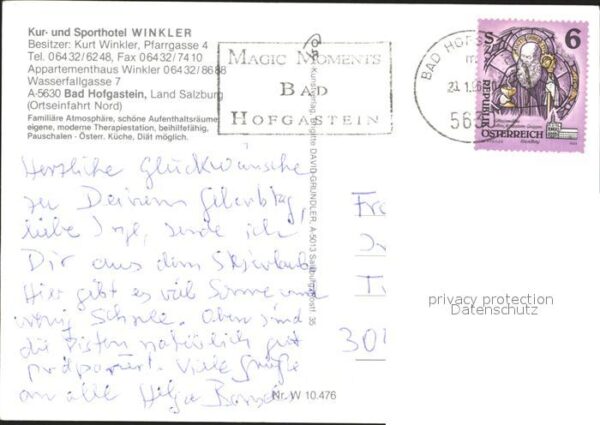 Kur- und Sporthotel WINKLER
Besitzer: Kurt Winkler, Pfarrgasse 4
Tel. 06432/6248, Fax 06432/7410
Appartementhaus Winkler 06432/8688
Wasserfallgasse 7
A-5630 Bad Hofgastein, Land Salzburg
(Ortseinfahrt Nord)
Familiäre Atmosphäre, schöne Aufenthaltsräume,
eigene, moderne Therapiestation, beihilfefähig,
Pauschalen - Österr. Küche, Diät möglich.
MAGIC MOMENTS
BAD
HOFGASTEIN
BAD HOFG
563
6
S
REPUBLIK
ÖSTERREICH
Kunstverlag Brigitte DAVID-GRÜNDLER, A-5013 Salzburg, Postf. 35
Herzliche Glückwünsche
zu Deinem Geburtstag,
liebe Inge, sende ich
Dir aus dem Skiurlaub.
Hier gibt es viel Sonne und
wenig Schnee. Oben sind
die Pisten natürlich gut
präpariert. Viele Grüße
an alle Helga
Fr
In
T
30
privacy protection
Datenschutz
Nr. W 10.476